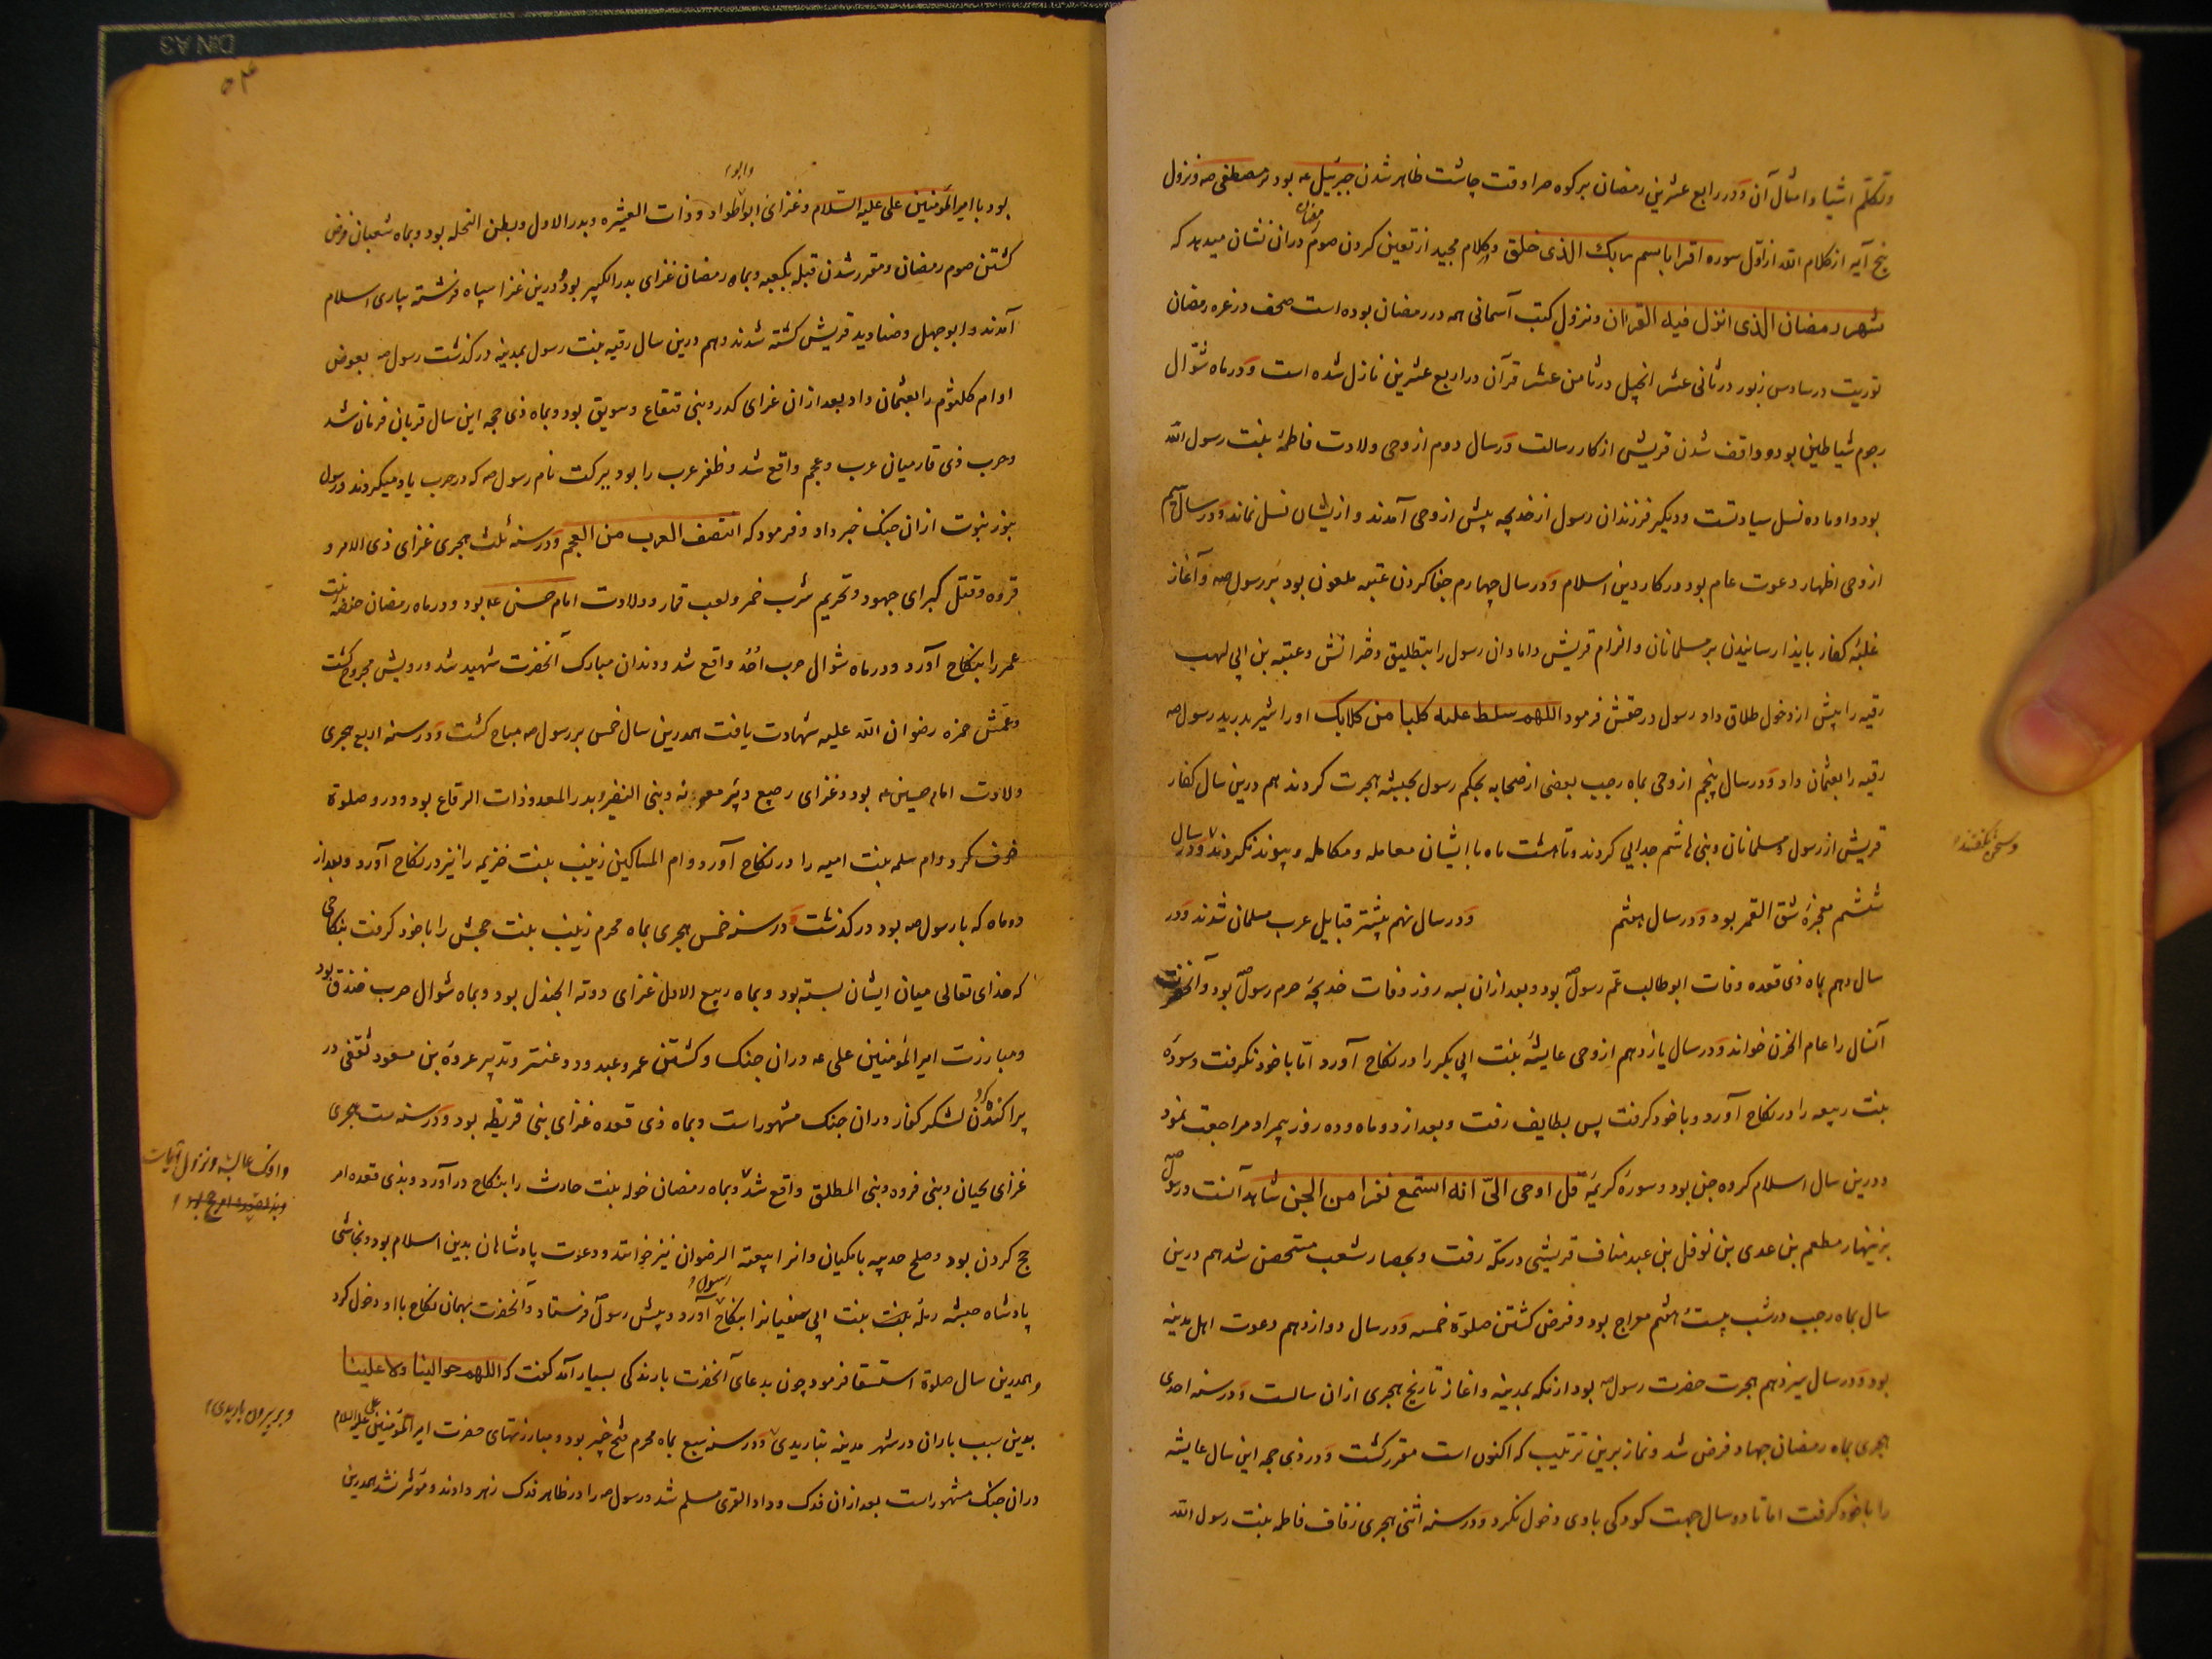 وتکلّم اشیا و امثال آن و در رابع عشرین رمضان بر کوه حرا وقت چاشت ظاهر شدن جبرئیل عه بود بر مصطفی صه و نزول
پنج آیه از کلام الله از اوّل سوره اقرا باسم ربک الذی خلق و کلام مجید از تعین کردن صوم رمضان در ان نشان میدهد که
شهر رمضان الذی انزل فیه القران و نزول کتب آسمانی همه در رمضان بوده است صحف در غره رمضان
توریت در سادس زبور در ثانی عشر انجیل در ثامن عشر قرآن در رابع عشرین نازل شده است و در ماه شوّال
رجوم شیاطین بود و واقف شدن قریش از کار رسالت و در سال دوم از وحی ولادت فاطمهٔ بنت رسول الله
بود و او ماده نسل سیادتست و دیگر فرزندان رسول از خدیجه پیش از وحی آمدند و از یشان نسل نماند و در سال سیم
از وحی اظهار دعوت عام بود در کار دین اسلام و در سال چهارم جفا کردن عتبه ملعون بود بر رسول صه و آغاز
غلبهٔ کفار بایذا رسانیدن بر مسلمانان و الزام قریش دامادان رسول را بتطلیق دخترانش و عتبه بن ابی لهب
رقیه را پیش از دخول طلاق داد رسول در حقش فرمود اللهم سلط علیه کلبا من کلابک او را شیر بدرید رسول صه
رقیه را بعثمان داد و در سال پنجم از وحی بماه رجب بعضی از صحابه بحکم رسول بحبشه هجرت کردند هم درین سال کفار
قریش از رسول و مسلمانان و بنی هاشم جدایی کردند و تا هشت ماه با ایشان معامله و مکالمه و پیوند نکردند و در سال
و سخن نگفتند
ششم معجزهٔ شق القمر بود و در سال هشتم و در سال نهم بیشتر قبایل عرب مسلمان شدند و در
سال دهم بماه ذی قعده وفات ابو طالب عم رسول بود و بعد از ان بسه روز وفات خدیجهٔ حرم رسول بود و آنحضرت
آنسال را عام الحزن خواند و در سال یازدهم از وحی عایشهٔ بنت ابی بکر را در نکاح آورد امّا با خود نگرفت و سودهٔ
بنت ربیعه را در نکاح آورد و با خود گرفت پس بطایف رفت و بعد از دو ماه و ده روز بیمراد مراجعت نمود
و درین سال اسلام کروه جن بود و سورهٔ کریمهٔ قل اوحی الیّ انه استمع نفر من الجن شاهد آنست و رسول صه
بزینهار مطعم بن عدی بن نوفل بن عبد مناف قریشی در مکه رفت و بحصار شعب متحصن شد هم درین
سال بماه رجب در شب بیست هشتم معراج بود و فرض گشتن صلوة خمسه و در سال دوازدهم دعوت اهل مدینه
بود و در سال سیزدهم هجرت حضرت رسول صه بود از مکه بمدینه و اغاز تاریخ هجری از ان سالست و در سنه احدی
هجری بماه رمضان جهاد فرض شد و نماز برین ترتیب که اکنون است مقرر گشت و در ذی حجه این سال عایشه
را با خود گرفت اما تا دو سال جهت کودکی با وی دخول نکرد و در سنه اثنی هجری زفاف فاطمه بنت رسول الله
۵۴
بود با امیر المؤمنین علی علیه السلام و غزای ابوا و ذات العشیره و بدر الاول و بطن النخله بود و بماه شعبان فرض
گشتن صوم رمضان و مقرر شدن قبله بکعبه و بماه رمضان غزای بدر الکبیر بود و درین غزا سپاه فرشته بیاری اسلام
آمدند و ابوجهل و صنادید قریش کشته شدند و هم درین سال رقیه بنت رسول بمدینه در گذشت رسول صه بعوض
او ام کلثوم را بعثمان داد بعد از ان غزای کدر و بنی قنقاع و سویق بود و بماه ذی حجه این سال قربان فرمان شد
و حرب ذی قار میان عرب و عجم واقع شد و ظفر عرب را بود ببرکت نام رسول صه که در حرب یاد میکردند و رسول
بنور نبوت از ان جنک خبر داد و فرمود که انتصف العرب من العجم و در سنه ثلث هجری غزای ذی الامر و
قروه و قتل کبرای جهود و تحریم شرب خمر و لعب قمار و ولادت امام حسن عه بود و در ماه رمضان حفصه بنت
عمر را بنکاح آورد و در ماه شوال حرب اُحُد واقع شد و دندان مبارک آنحضرت شهید شد و رویش مجروح گشت
و عمّش حمزه رضوان الله علیه شهادت یافت همدرین سال خمس بر رسول صه مباح گشت و در سنه اربع هجری
ولادت امام حسین عه بود و غزای رجیع و بئر معونه و بنی النضر و بدر المعد و ذات الرقاع بود و درو صلوة
خوف کرد و ام سلمه بنت امیه را در نکاح آورد و ام المساکین زینب بنت خزیمه را نیز در نکاح آورد و بعد از
دو ماه که با رسول صه بود در گذشت و در سنه خمس هجری بماه محرم زینب بنت جحش را با خود گرفت بنکاحی
که خدای تعالی میان ایشان بسته بود و بماه ربیع الاول غزای دومة الجندل بود و بماه شوال حرب خندق بود
و مبارزت امیر المؤمنین علی عه در ان جنک و کشتن عمرو عبد ود و عنتر و تدبیر عروهٔ بن مسعود ثقفی در
پراکندن لشکر کفار در ان جنک مشهور است و بماه ذی قعده غزای بنی قریظه بود و در سنه ست هجری
غزای لحیان و بنی قروه و بنی المطلق واقع شد و بماه رمضان خوله بنت حارث را بنکاح در آورد و بذی قعده امر
و افک عایشه و نزول آیات
حج کردن بود و صلح حدیبیه با مکیان و انرا بیعة الرضوان نیز خوانند و دعوت پادشاهان بدین اسلام بود و نجاشی
پادشاه حبشه رمله بنت ابی سفیانرا بنکاح رسول آورد و پیش رسول فرستاد و آنحضرت بهمان نکاح با او دخول کرد
و همدرین سال صلوة استسقا فرمود چون بدعای آنحضرت بارندکی بسیار آمد گفت که اللهم حوالینا ولا علینا
بدین سبب باران در شهر مدینه نباریدی و در سنه سبع بماه محرم فتح خیبر بود و مبارزتهای حضرت امیر المؤمنین علی علیه السلام
و بر بیرون باریدی
در ان جنک مشهور است بعد از ان فدک و واد القری مسلم شد و رسول صه را در ظاهر فدک زهر دادند و مؤثر نشد همدرین